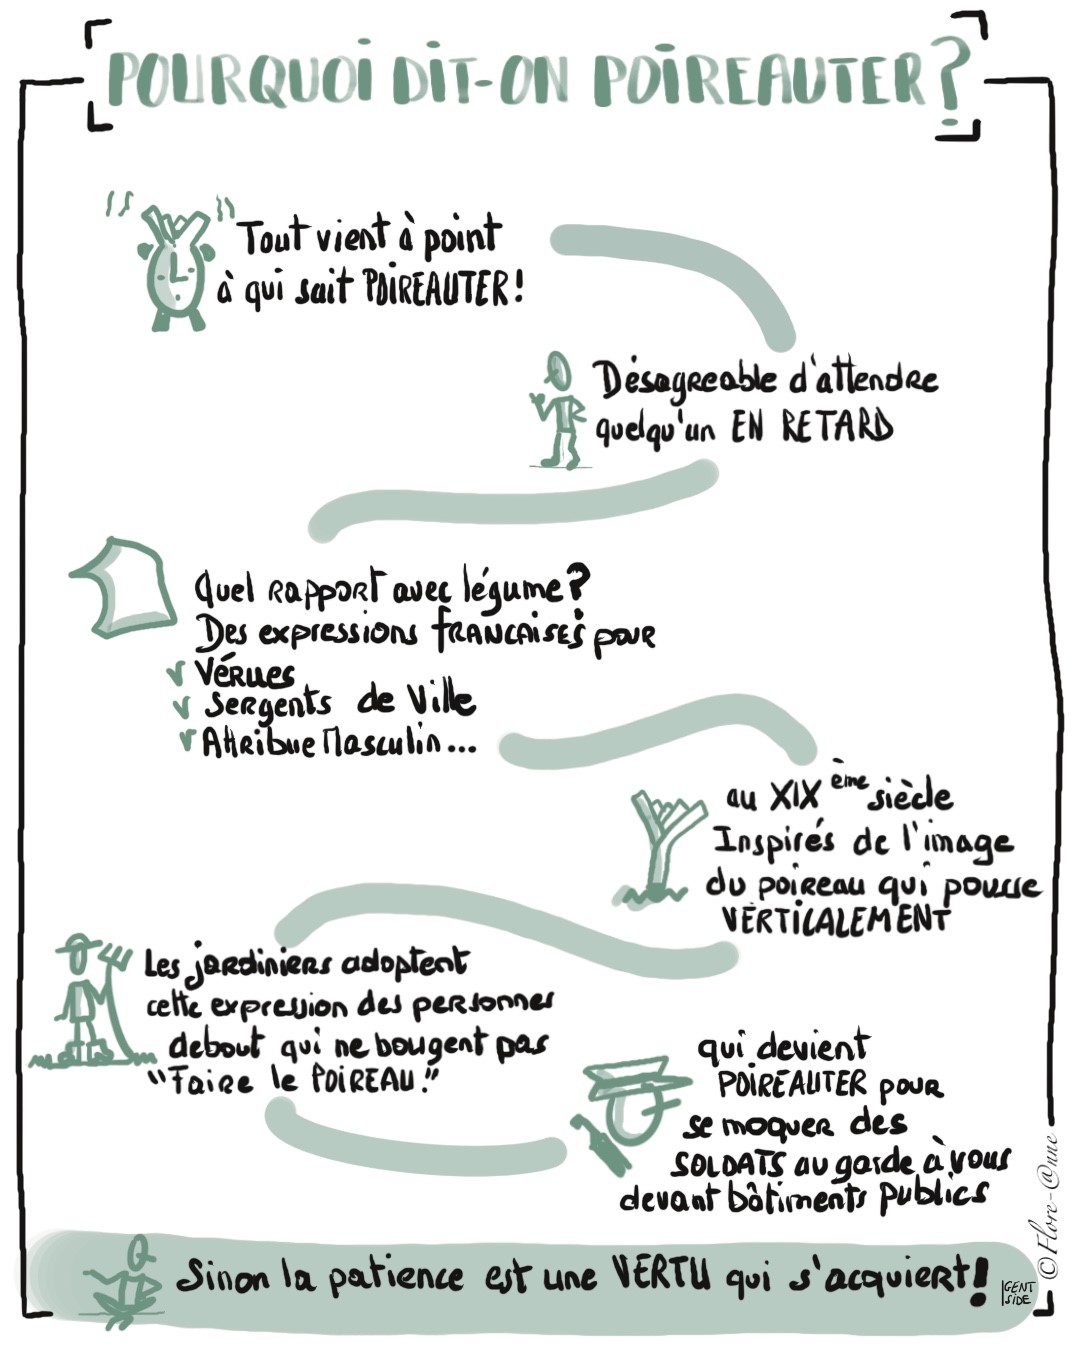 POURQUOI DIT-ON POIREAUTER?
Tout vient à point
à qui sait POIREAUTER!
Désagreable d'attendre
quelqu'un EN RETARD
Quel rapport avec légume?
Des expressions francaises pour
Vérues
Sergents de Ville
Attribue Masculin...
au XIXème siècle
Inspirés de l'image
du poireau qui pousse
VERTICALEMENT
Les jardiniers adoptent
cette expression des personnes
debout qui ne bougent pas
"Faire le POIREAU!"
qui devient
POIREAUTER pour
se moquer des
SOLDATS au garde à vous
devant bâtiments publics
Sinon la patience est une VERTU qui s'acquiert!
GENT
SIDE
©Flore-@nne